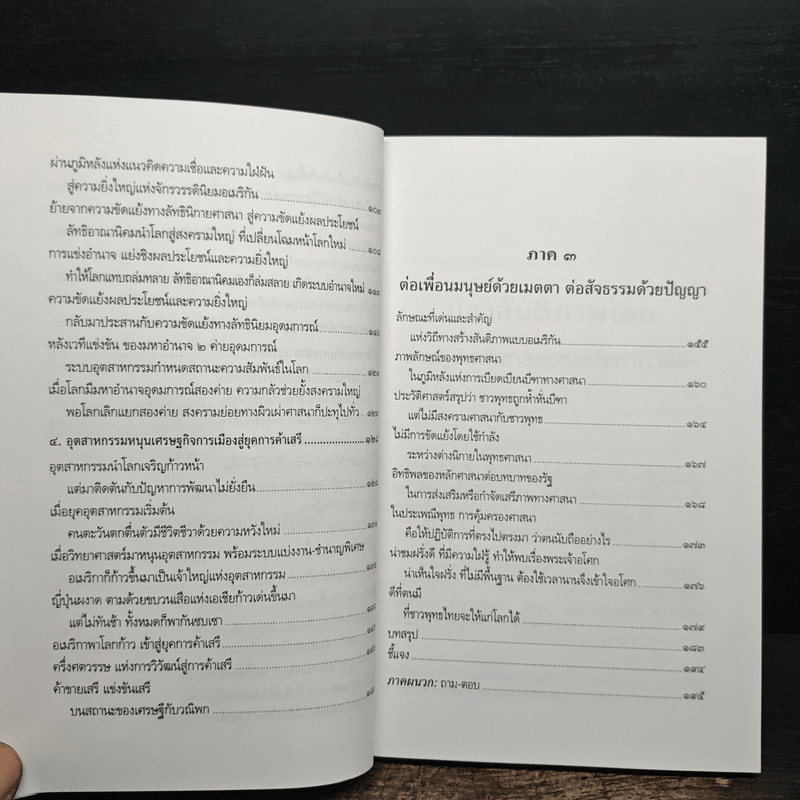 ผ่านภูมิหลังแห่งแนวคิดความเชื่อและความใฝ่ฝัน
สู่ความยิ่งใหญ่แห่งจักรวรรดินิยมอเมริกัน ๑๐๓
ย้ายจากความขัดแย้งทางลัทธินิกายศาสนา สู่ความขัดแย้งผลประโยชน์
ลัทธิอาณานิคมนำโลกสู่สงครามใหญ่ ที่เปลี่ยนโฉมหน้าโลกใหม่ ๑๐๘
การแข่งอำนาจ แย่งชิงผลประโยชน์และความยิ่งใหญ่
ทำให้โลกแทบถล่มทลาย ลัทธิอาณานิคมเองก็ล่มสลาย เกิดระบบอำนาจใหม่ ๑๑๓
ความขัดแย้งผลประโยชน์และความยิ่งใหญ่
กลับมาประสานกับความขัดแย้งทางลัทธินิยมอุดมการณ์
หลังเวทีแข่งขัน ของมหาอำนาจ ๒ ค่ายอุดมการณ์
ระบบอุตสาหกรรมกำหนดสถานะความสัมพันธ์ในโลก
เมื่อโลกมีมหาอำนาจอุดมการณ์สองค่าย ความกลัวช่วยยั้งสงครามใหญ่
พอโลกเลิกแยกสองค่าย สงครามย่อยทางผิวเผ่าศาสนาก็ปะทุไปทั่ว
๔. อุตสาหกรรมหนุนเศรษฐกิจการเมืองสู่ยุคการค้าเสรี ๑๒๘
อุตสาหกรรมนำโลกเจริญก้าวหน้า
แต่มาติดตันกับปัญหาการพัฒนาไม่ยั่งยืน ๑๒๘
เมื่อยุคอุตสาหกรรมเริ่มต้น
คนตะวันตกตื่นตัวมีชีวิตชีวาด้วยความหวังใหม่
เมื่อวิทยาศาสตร์มาหนุนอุตสาหกรรม พร้อมระบบแบ่งงาน-ชำนาญพิเศษ
อเมริกาก็ก้าวขึ้นมาเป็นเจ้าใหญ่แห่งอุตสาหกรรม
ญี่ปุ่นผงาด ตามด้วยขบวนเสือแห่งเอเชียก้าวเด่นขึ้นมา
แต่ไม่ทันช้า ทั้งหมดก็พากันซบเซา
อเมริกาพาโลกก้าว เข้าสู่ยุคการค้าเสรี
ครึ่งศตวรรษ แห่งการวิวัฒน์สู่การค้าเสรี
ค้าขายเสรี แข่งขันเสรี
บนสถานะของเศรษฐีกับวณิพก
ภาค ๓
ต่อเพื่อนมนุษย์ด้วยเมตตา ต่อสัจธรรมด้วยปัญญา
ลักษณะที่เด่นและสำคัญ
แห่งวิถีทางสร้างสันติภาพแบบอเมริกัน ๑๕๕
ภาพลักษณ์ของพุทธศาสนา
ในภูมิหลังแห่งการเบียดเบียนบีฑาทางศาสนา ๑๖๐
ประวัติศาสตร์สรุปว่า ชาวพุทธถูกห้ำหั่นบีฑา
แต่ไม่มีสงครามศาสนากับชาวพุทธ ๑๖๔
ไม่มีการขัดแย้งโดยใช้กำลัง
ระหว่างต่างนิกายในพุทธศาสนา ๑๖๗
อิทธิพลของหลักศาสนาต่อบทบาทของรัฐ
ในการส่งเสริมหรือกำจัดเสรีภาพทางศาสนา ๑๖๘
ในประเพณีพุทธ การคุ้มครองศาสนา
คือให้ปฏิบัติการที่ตรงไปตรงมา ว่าตนนับถืออย่างไร ๑๗๓
น่าชมฝรั่งดี ที่มีความใฝ่รู้ ทำให้พบเรื่องพระเจ้าอโศก
น่าเห็นใจฝรั่ง ที่ไม่มีพื้นฐาน ต้องใช้เวลานานจึงเข้าใจอโศก ๑๗๖
ดีที่ตนมี
ที่ชาวพุทธไทยจะให้แก่โลกได้ ๑๗๙
บทสรุป ๑๘๓
ชี้แจง ๑๙๔
ภาคผนวก: ถาม-ตอบ ๑๙๕